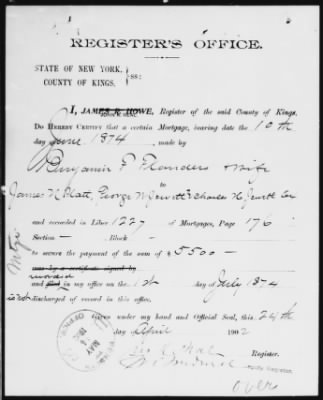 REGISTER'S OFFICE.
STATE OF NEW YORK,
COUNTY OF KINGS.
ss:
I, JAMES R. HOWE, Register of the said County of Kings,
Do Hereby Certify that a certain Mortgage, bearing date the 10th
day of June 1874 made by
Benjamin F Flanders & wife
to
James N. Platt, George W Jewett & Charles H Jewett Exr
and recorded in Liber 1227 of Mortgages, Page 176
Section — Block —
to secure the payment of the sum of $5500 —
was by a certificate signed by
recorded
and filed in my office on the 1st day of July 1874
is not discharged of record in this office.
Given under my hand and Official Seal, this 24th
day of April 1902
Register.
over